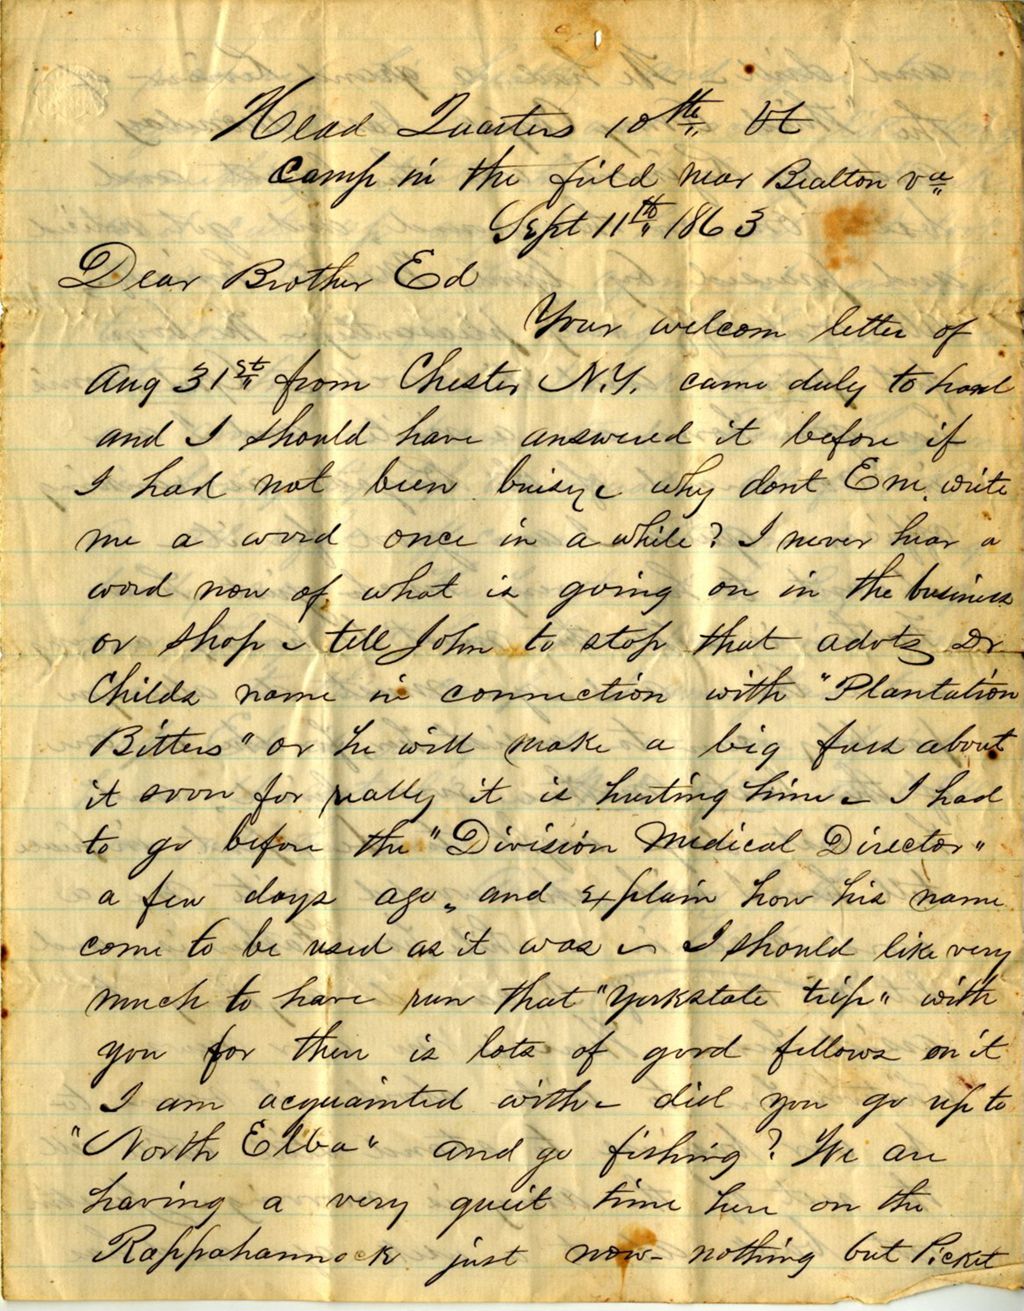 Head Quarters 10th Vt
Camp in the field near Bealton Va
Sept 11th 1863
Dear Brother Ed
Your welcom letter of
Aug 31st from Chester N.Y. came duly to hand
and I should have answered it before if
I had not been buisy ~ why dont Em. write
me a word once in a while? I never hear a
word now of what is going on in the business
or shop ~ tell John to stop that advtg Dr
Childs name in connection with "Plantation
Bitters" or he will make a big fuss about
it soon for really it is hurting him ~ I had
to go before the "Division Medical Director"
a few days ago, and explain how his name
come to be used as it was ~ I should like very
much to have run that "Yorkstate trip" with
you for then is lots of good fellows on it
I am acquainted with ~ did you go up to
"North Elba" and go fishing? We are
having a very queit time here on the
Rappahannock just now - nothing but Picket